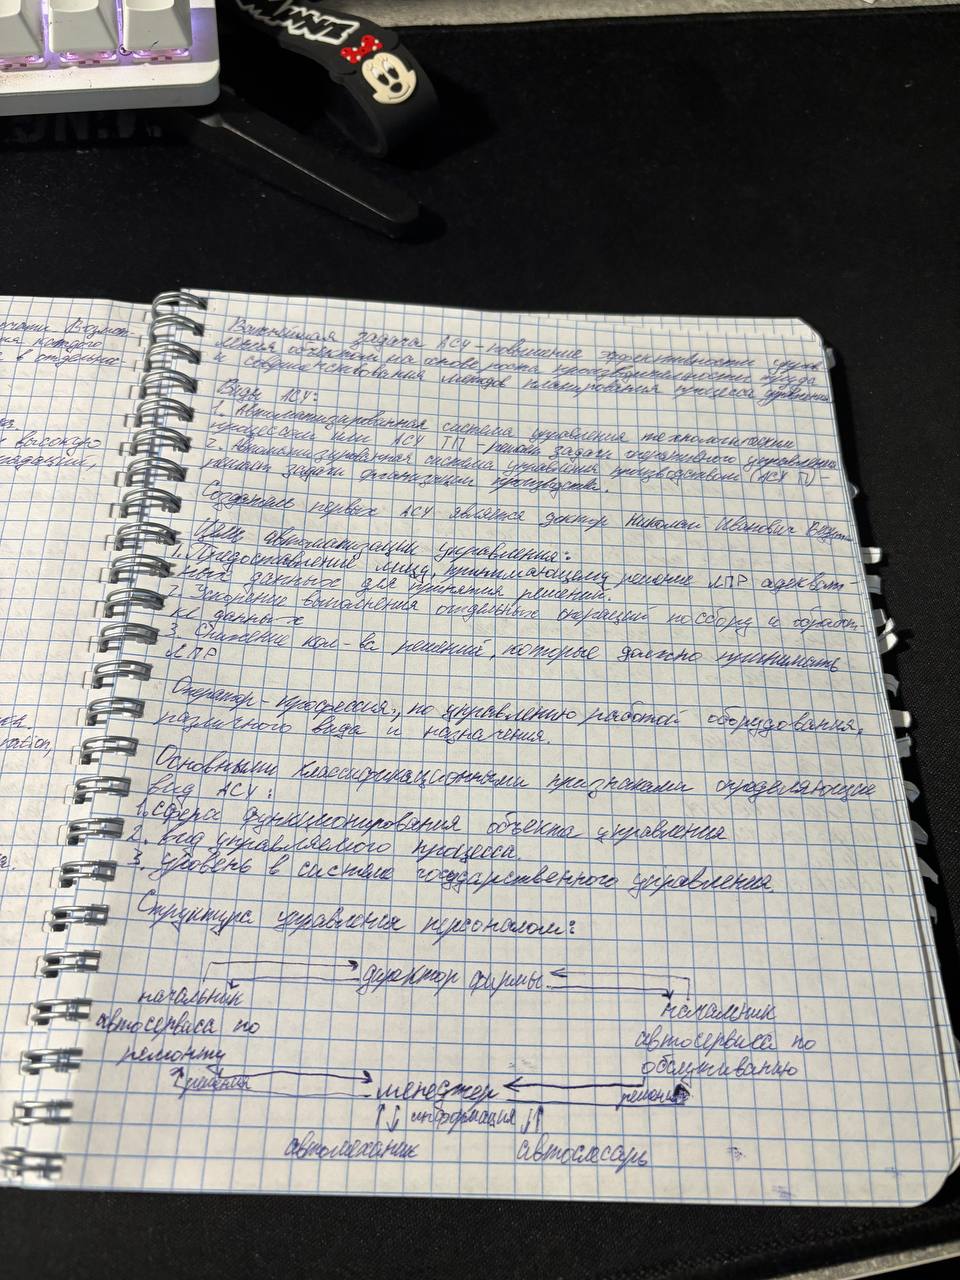 очами Возмож-
ия каждого
в отдельнос-
высокую
nation,
Важнейшая задача АСУ - повышение эффективности управ
ления объектом на основе роста производительности труда
и совершенствования методов планирования процесса управления
Виды АСУ:
1. Автоматизированная система управления технологическим
процессом или АСУ ТП - решает задачи оперативного управления
2. Автоматизированная система управления производством (АСУ П) -
решает задачи организации производства.
Создатель первых АСУ является доктор Николай Иванович
Цели автоматизации управления:
1. Предоставление лицу, принимающему решение ЛПР адекват
ных данных для принятия решений.
2. Ускорение выполнения отдельных операций по сбору и обработ-
ке данных
3. Снижение кол-ва решений, которые должно принимать
ЛПР
Оператор - профессия, по управлению работой оборудования,
различного вида и назначения.
Основными классификационными признаками определяющие
вид АСУ:
1. Сфера функционирования объекта управления
2. вид управляемого процесса.
3. уровень в системе государственного управления.
Структура управления персоналом:
директор фирмы
начальник
автосервиса по
ремонту
начальник
автосервиса по
обслуживанию
решения
менеджер
решения
информация
автомеханик
автослесарь